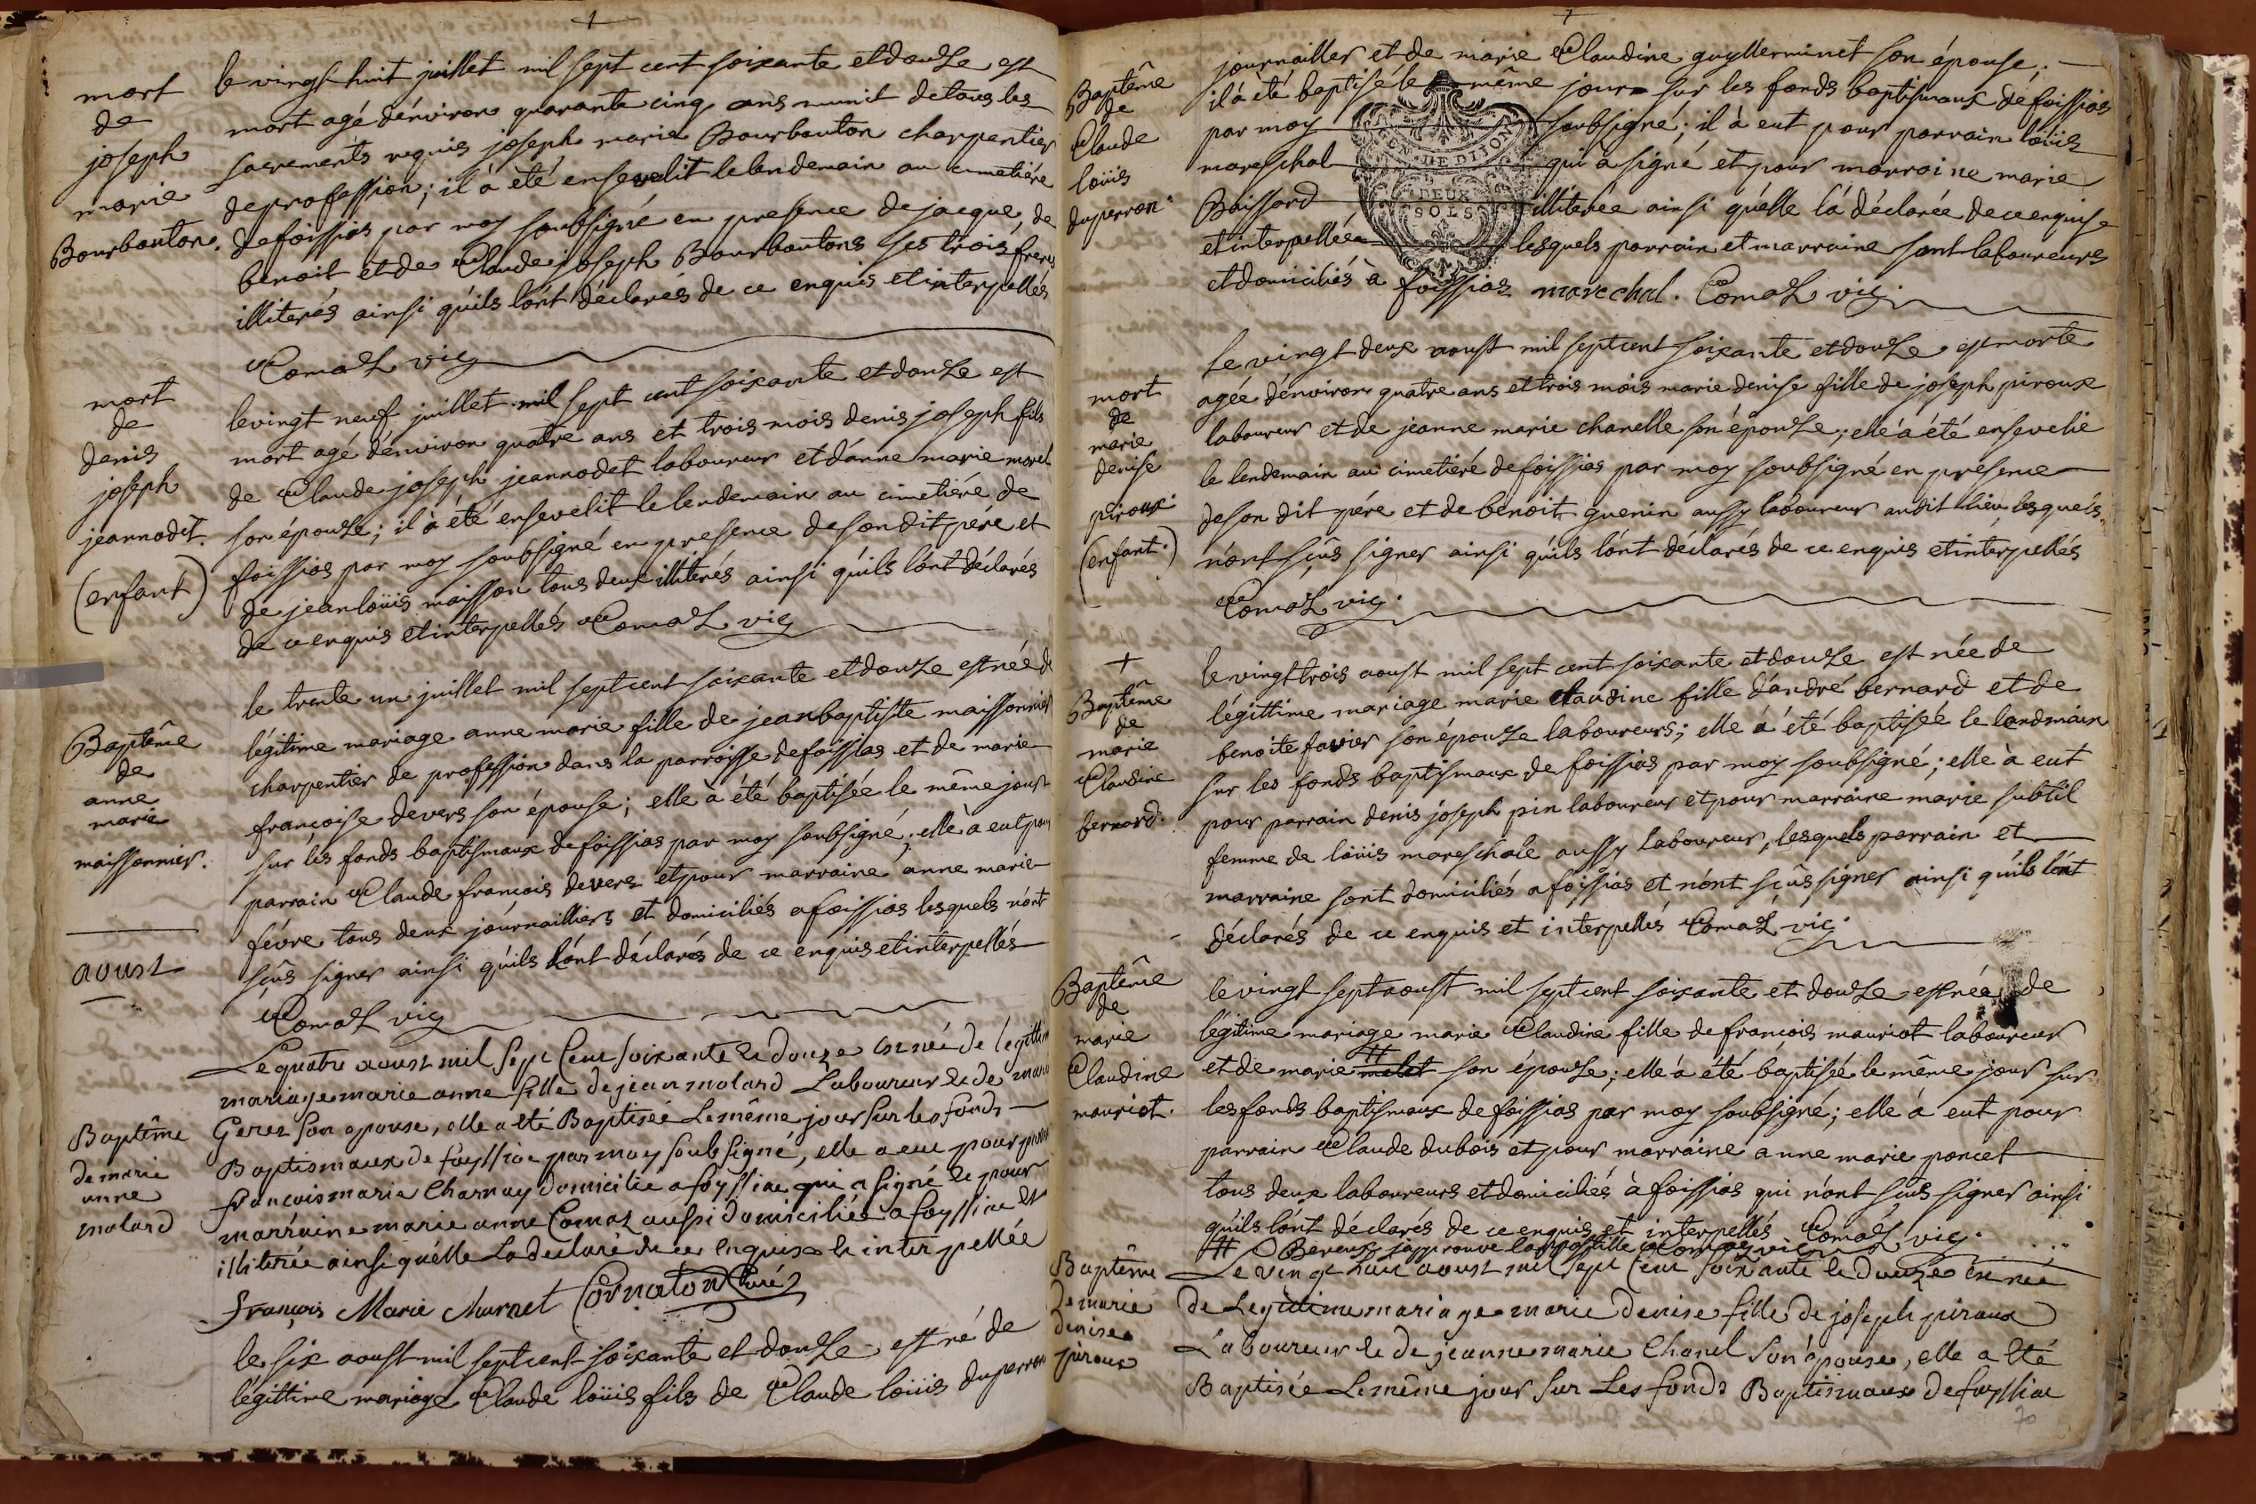 mort
de
joseph
marie
Bourbouton.
le vingt huit juillet mil sept cent soixante et douze est
mort agé d'énviron quarante cinq ans munit de tous les
sacrements requis joseph marie Bourbouton charpentier
de profession; il à été ensevelit le lendemain au cimetiére
de foissias par moy soubsigné en presence de jacque, de
benoit et de Claude joseph Bourboutons ses trois freres
illiterés ainsi qu'ils l'ont déclarés de ce enquis et interpellés
Comaz vic
mort
de
denis
joseph
jeannodet.
(enfant)
le vingt neuf juillet mil sept cent soixante et douze est
mort agé d'énviron quatre ans et trois mois denis joseph fils
de Claude joseph jeannodet laboureur et d'anne marie morel
son épouze; il à été ensevelit le lendemain au cimetiére de
foissias par moy soubsigné en presence de son dit pére et
de jean loüis maisson tous deux illiterés ainsi qu'ils l'ont déclarés
de ce enquis et interpellés Comaz vic
Baptême
de
anne
marie
maissonnier.
le trente un juillet mil sept cent soixante et douze est née de
légitime mariage anne marie fille de jean baptiste maissonnier
charpentier de profession dans la parroisse de foissias et de marie
françoise devers son épouse; elle à été baptisée le même jour
sur les fonds baptismaux de foissias par moy soubsigné; elle à eut pour
parrain Claude françois devers et pour marraine anne marie
févre tous deux journailliers et domiciliés a foissias lesquels n'ont
sçûs signer ainsi qu'ils l'ont déclarés de ce enquis et interpellés
Comaz vic
aoust
Baptême
de marie
anne
molard
Le quatre aoust mil sept Cent soixante et douze est née de légittime
mariage marie anne fille de jean molard Laboureur et de marie
Gerez son epouse, elle a eté Baptisée Le même jour sur les fonds
Baptismaux de foyssiac par moy soubsigné, elle a eue pour
francois marie Charnay domicilié a foyssiac qui a signé et pour
marraine marie anne Comaz aussi domiciliée a foyssiac
illiterée ainsi quélle La declaré de ce enquise et interpellée
François Marie Curé
le six aoust mil sept cent soixante et douze est né de
légittime mariage Claude loüis fils de Claude loüis duperron
Baptême
de
Claude
loüis
duperron.
journailler et de marie Claudine guylleminet son épouse;
il à été baptisé le même jour sur les fonds baptismaux de foissias
par moy soubsigné; il à eut pour parrain loüis
mareschal qui à signé et pour marraine marie
Boissard illiterée ainsi qu'élle l'á déclarée de ce enquise
et interpellée lesquels parrain et marraine sont laboureurs
et domiciliés à foissias marechal. Comaz vic.
GN. DE DIJON
DEUX
SOLS
mort
de
marie
denise
piroux
(enfant.)
le vingt deux aoust mil sept cent soixante et douze est morte
agée d'énviron quatre ans et trois mois marie denise fille de joseph piroux
laboureur et de jeanne marie chanelle son épouze; elle à été ensevelie
le lendemain au cimetiéré de foissias par moy soubsigné en presence
de son dit pére et de benoit guenin aussy laboureur audit lieu lesquels
n'ont sçûs signer ainsi qu'ils l'ont déclarés de ce enquis et interpellés
Comaz vic.
Baptême
de
marie
Claudine
bernard.
le vingt trois aoust mil sept cent soixante et douze est née de
légittime mariage marie claudine fille d'andré bernard et de
benoite favier son épouze laboureurs; elle à été baptisée le landmain
sur les fonds baptismaux de foissias par moy soubsigné; elle à eut
pour parrain denis joseph pin laboureur et pour marraine marie subtil
femme de loüis mareschale aussy laboureur, lesquels parrain et
marraine sont domiciliés a foissias et n'ont sçûs signer ainsi qu'ils l'ont
déclarés de ce enquis et interpellés Comaz vic.
Baptême
de
marie
Claudine
mauriot.
le vingt sept aoust mil sept cent soixante et douze est née de
légitime mariage marie Claudine fille de françois mauriot laboureur
et de marie # son épouze; elle à été baptisé le même jour sur
les fonds baptismaux de foissias par moy soubsigné; elle à eut pour
parrain Claude dubois et pour marraine anne marie poncet
tous deux laboureurs et domiciliés à foissias qui n'ont sçûs signer ainsi
qu'ils l'ont déclarés de ce enquis et interpellés Comaz vic.
# j'approuve l'apostille Comaz vic
Baptême
de marie
denise
piroux
Le vingt huit aoust mil sept Cent soixante et douze est née
de Legitime mariage marie denise fille de joseph piroux
Laboureur et de jeanne marie Chanel son épouse, elle a eté
Baptisée Le même jour sur Les fonds Baptismaux de foyssiac
70